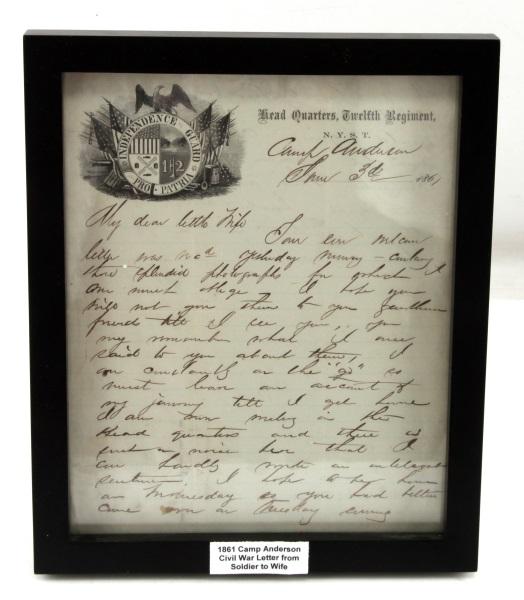 INDEPENDENCE GUARD
12
PRO-PATRIA
Head Quarters, Twelfth Regiment,
N. Y. S. T.
Camp Anderson
June 3d 1861
My dear little Wife Your ever welcome
letter was rec'd yesterday
those splendid photographs for which I
am much I hope you
will not give them to your gentlemen
friends till I see you, you
my remember what I once
said to you about them, I
am constantly on the "go" so
must leave an account of
my journey till I get home
I am now writing in the
Head quarters and there is
such a noise here that I
can hardly write an intelligent
sentence. I hope to be home
on Wednesday so you had better
come on Tuesday evening
1861 Camp Anderson
Civil War Letter from
Soldier to Wife